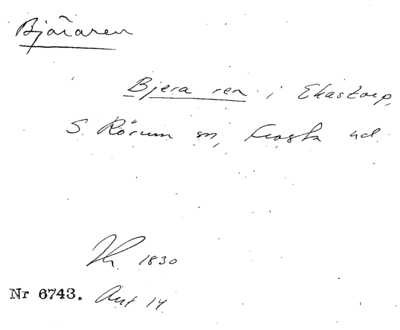 Bjäraren
Bjera ren i Ekastorp,
S. Rörum sn, Frosta hd.
1830
Nr 6743. Ant 14.